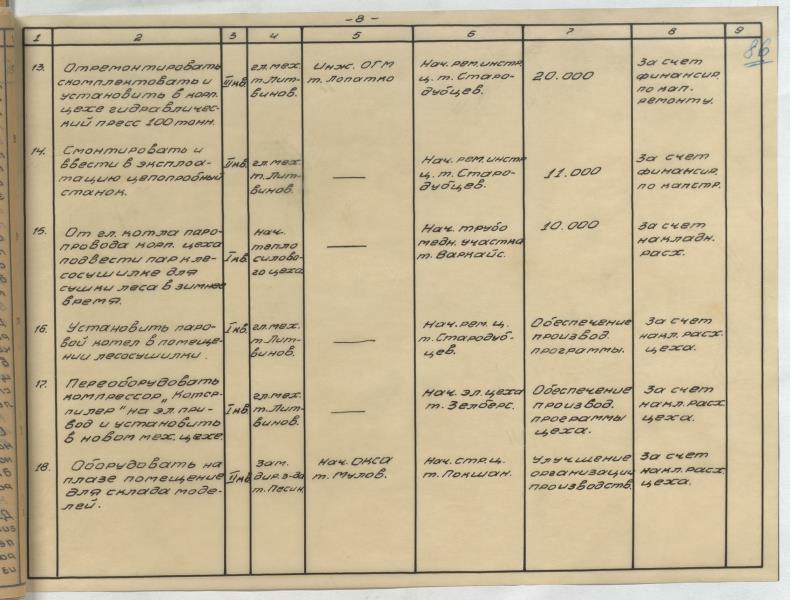 - 8 -
86
1 2 3 4 5 6 7 8 9
13. Отремонтировать
скомплектовать и
установить в корп.
цехе гидравличес-
кий пресс 100 тонн.
III кв.
гл. мех.
т. Лит-
винов.
Инж. ОГМ
т. Лопатко
Нач. рем. инстр.
ц. т. Старо-
дубцев.
20.000
За счет
финансир.
по кап.
ремонту.
14. Смонтировать и
ввести в эксплоа-
тацию цепопробный
станок.
II кв.
гл. мех.
т. Лит-
винов.
—
Нач. рем. инстр.
ц. т. Старо-
дубцев.
11.000
За счет
финансир.
по капстр.
15. От гл. котла паро-
провода корп. цеха
подвести пар к ле-
сосушилке для
сушки леса в зимнее
время.
I кв.
нач.
тепло
силово-
го цеха
—
Нач. трубо
медн. участка
т. Варкайс.
10.000
За счет
накладн.
расх.
16. Установить паро-
вой котел в помеще-
нии лесосушилки.
I кв.
гл. мех.
т. Лит-
винов.
—
Нач. рем. ц.
т. Стародуб-
цев.
Обеспечение
производ.
программы.
За счет
накл. расх.
цеха.
17. Переоборудовать
компрессор „Катер-
пилер" на эл. при-
вод и установить
в новом мех. цехе.
I кв.
гл. мех.
т. Лит-
винов.
—
Нач. эл. цеха
т. Зелберс.
Обеспечение
производ.
программы
цеха.
За счет
накл. расх.
цеха.
18. Оборудовать на
плазе помещение
для склада моде-
лей.
II кв.
Зам.
дир. з-да
т. Песин.
Нач. ОКСа
т. Мулов.
Нач. стр. ц.
т. Покшан.
Улучшение
организации
производств.
За счет
накл. расх.
цеха.